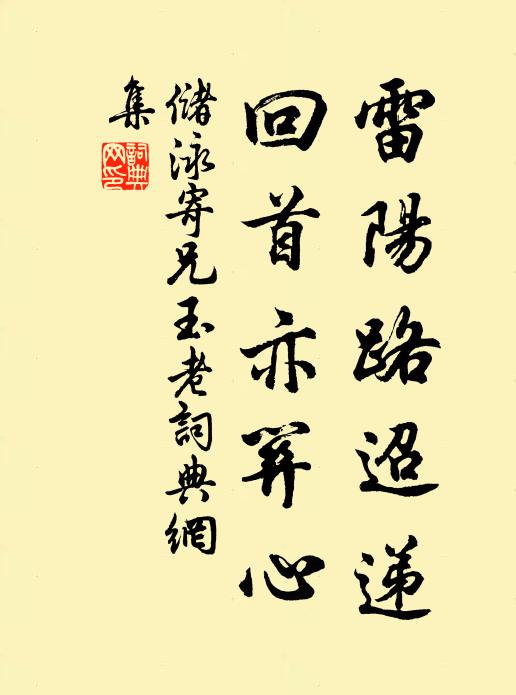 雷陽路迢递
回首亦关心
儲泳寄兄玉老詞典網
集
詞典
网印